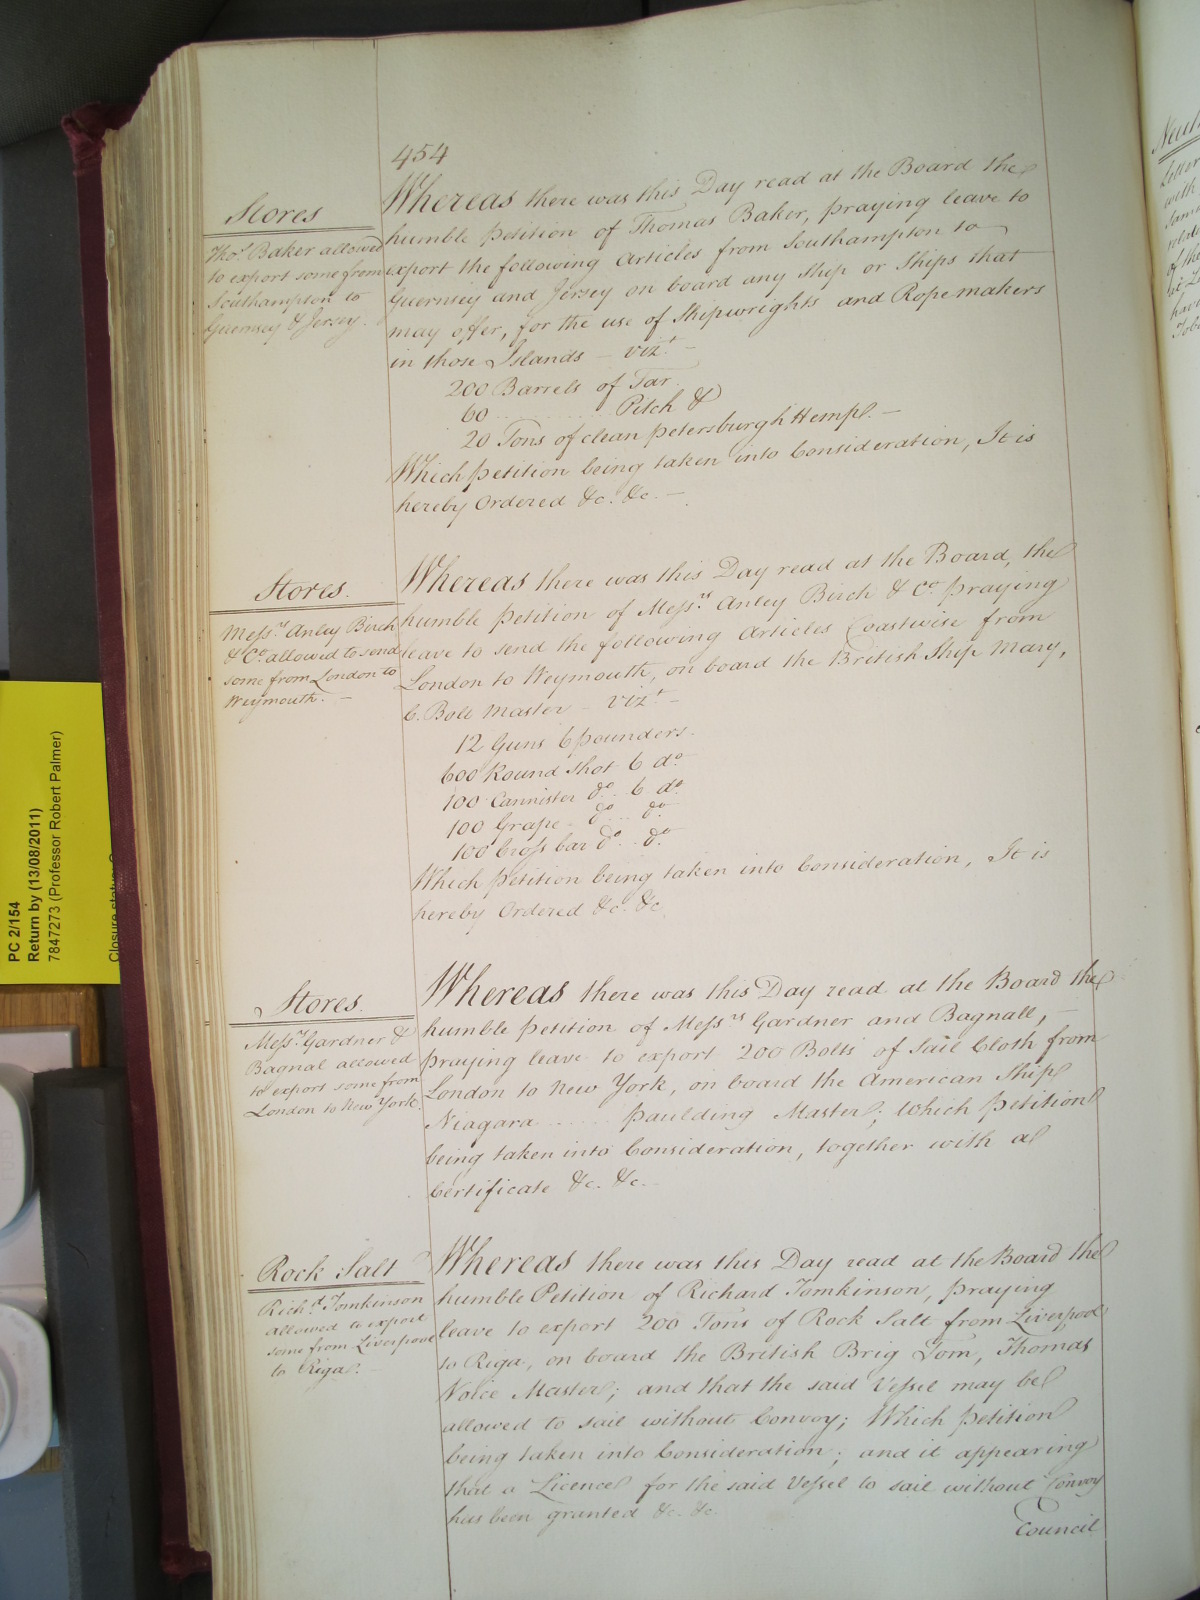 454
Stores
Thos. Baker allowed
to export some from
Southampton to
Guernsey & Jersey.
Whereas there was this Day read at the Board the
humble Petition of Thomas Baker, praying leave to
export the following Articles from Southampton to
Guernsey and Jersey on board any Ship or Ships that
may offer, for the use of Shipwrights and Ropemakers
in those Islands – vizt. –
200 Barrels of Tar.
60 ............ Pitch &
20 Tons of clean Petersburgh Hemp. –
Which Petition being taken into Consideration, It is
hereby Ordered &c. &c. –
Stores.
Messrs. Anley Birch
& Co. allowed to send
some from London to
Weymouth. –
Whereas there was this Day read at the Board, the
humble Petition of Messrs. Anley Birch & Co. praying
leave to send the following Articles Coastwise from
London to Weymouth, on board the British Ship Mary,
C. Bolt Master – vizt. –
12 Guns 6 pounders.
600 Round Shot 6 do.
100 Cannister do. 6 do.
100 Grape do. .. do.
100 Cross bar do. .. do.
Which Petition being taken into Consideration, It is
hereby Ordered &c. &c.
Stores.
Messrs. Gardner &
Bagnal allowed
to export some from
London to New York.
Whereas there was this Day read at the Board the
humble Petition of Messrs. Gardner and Bagnall, –
praying leave to export 200 Bolts of Sail Cloth from
London to New York, on board the American Ship
Niagara ...... Paulding Master; Which Petition
being taken into Consideration, together with a
Certificate &c. &c. –
Rock Salt
Richd. Tomkinson
allowed to export
some from Liverpool
to Riga. –
Whereas there was this Day read at the Board the
humble Petition of Richard Tomkinson, praying
leave to export 200 Tons of Rock Salt from Liverpool
to Riga, on board the British Brig Tom, Thomas
Noice Master; and that the said Vessel may be
allowed to sail without Convoy; Which Petition
being taken into Consideration; and it appearing
that a Licence for the said Vessel to sail without Convoy
has been granted &c. &c.
Council
PC 2/154
Return by (13/08/2011)
7847273 (Professor Robert Palmer)